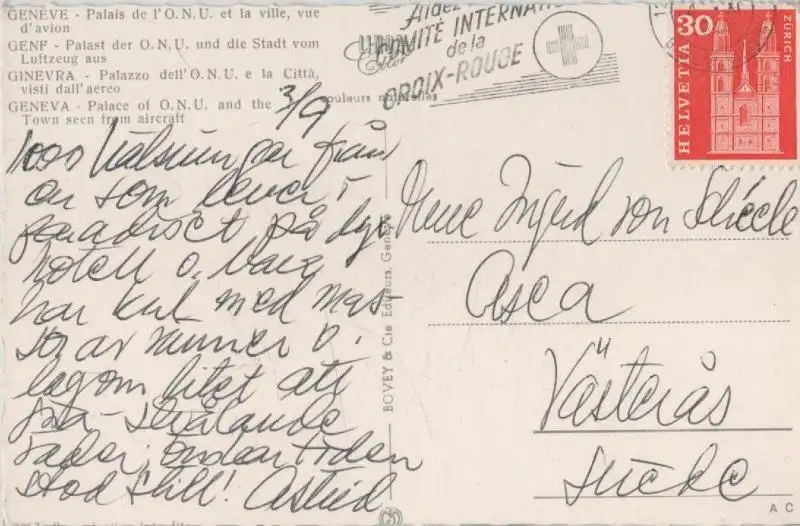 GENÈVE - Palais de l'O.N.U. et la ville, vue
d'avion
GENF - Palast der O.N.U. und die Stadt vom
Luftzeug aus
GINEVRA - Palazzo dell'O.N.U. e la Città,
visti dall'aereo
GENEVA - Palace of O.N.U. and the
Town seen from aircraft
couleurs naturelles
Aidez
COMITÉ INTERNAT
de la
CROIX-ROUGE
30
HELVETIA
ZÜRICH
3/9
1000 hälsningar från
en som lever i
paradiset på lyx
hotell o. bara
har kul med mas-
sor av vänner o.
lagom litet att
göra - strålande
väder. Om den tiden
stod still! Astrid
BOVEY & Cie Editeurs, Genève
Ingrid von Schéele
Asea
Västerås
Suède
A C